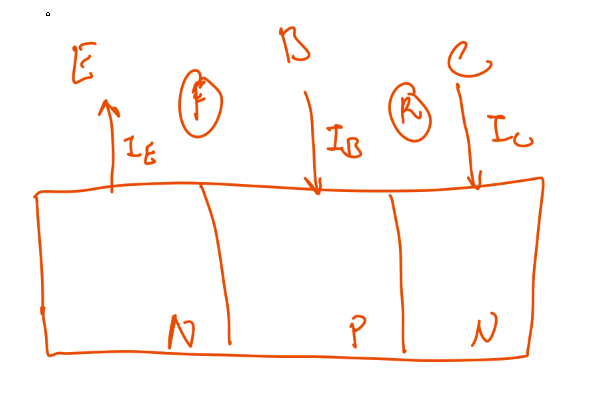 E F B R C
I_E I_B I_C
N P N